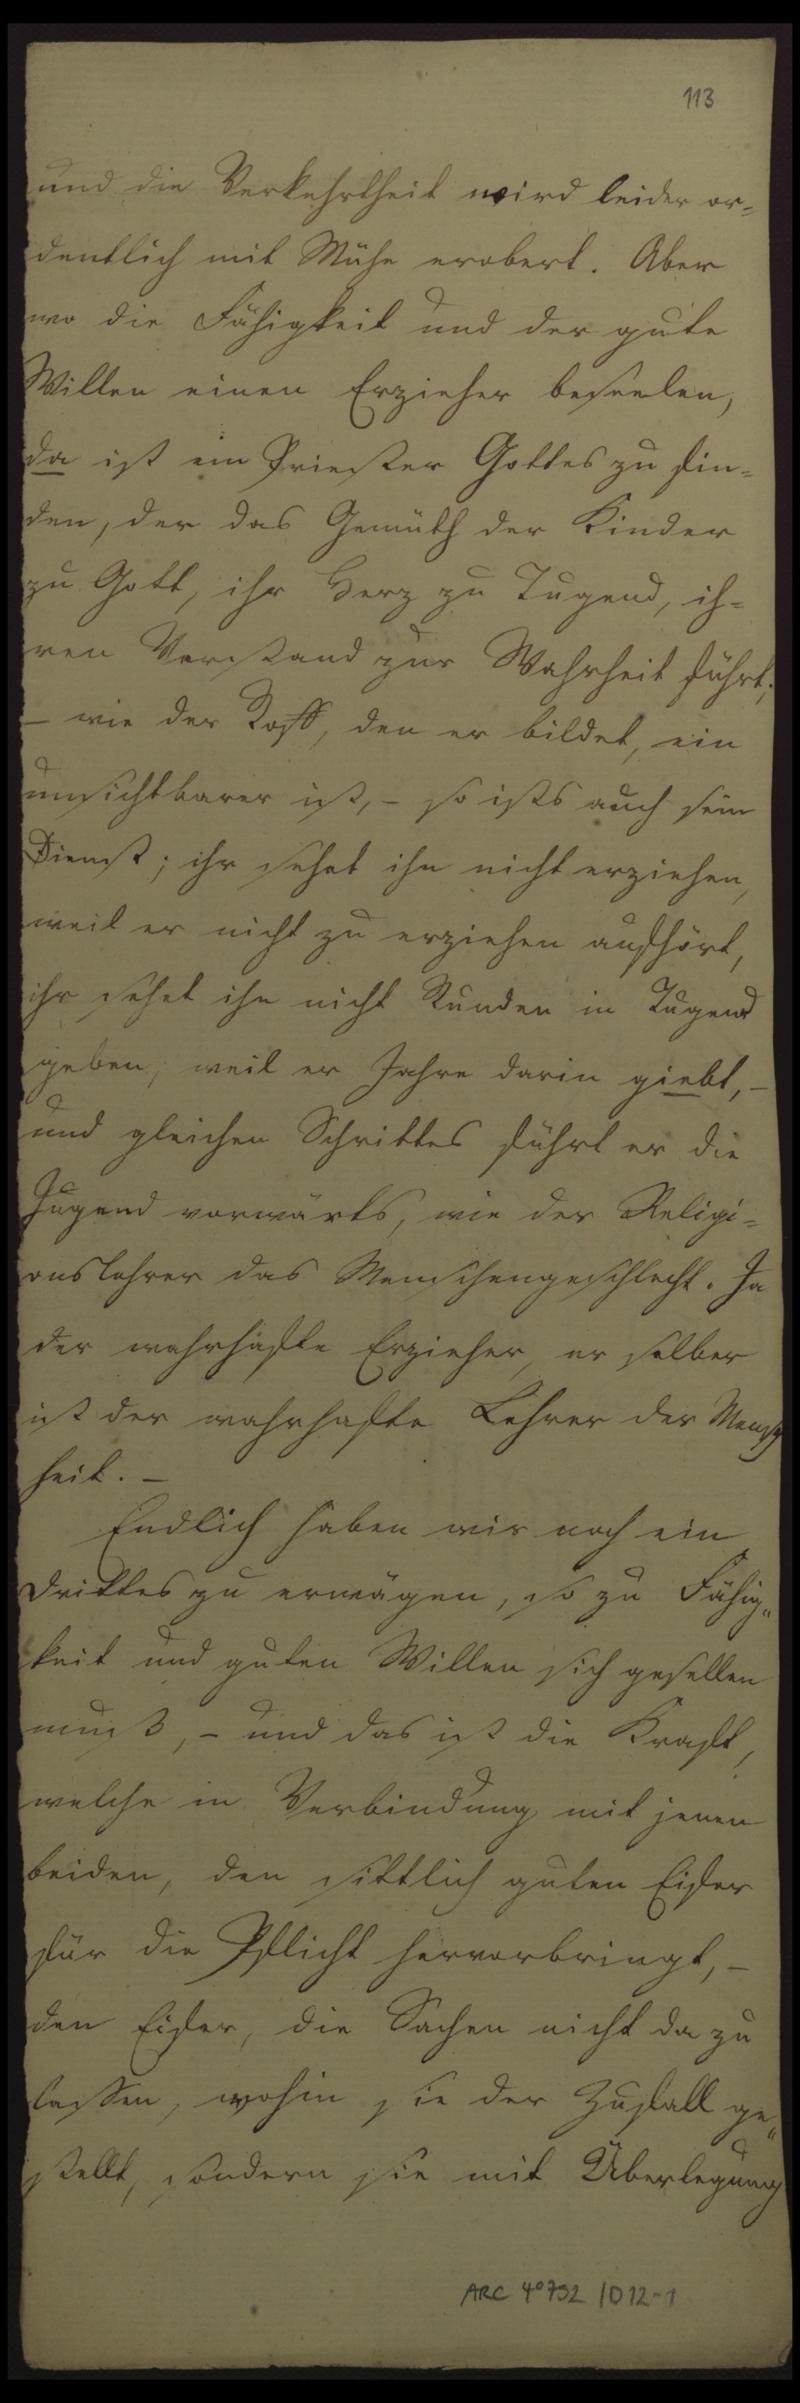 113
und die Verkehrtheit wird leider or=
dentlich mit Mühe erobert. Aber
wo die Fähigkeit und der gute
Willen einen Erzieher beseelen,
da ist ein Priester Gottes zu fin=
den, der das Gemüth der Kinder
zu Gott, ihr Herz zu Tugend, ih=
ren Verstand zur Wahrheit führt;
– wie der Stoff, den er bildet, ein
unsichtbarer ist, – so ists auch sein
Dienst; ihr sehet ihn nicht erziehen,
weil er nicht zu erziehen aufhört,
ihr sehet ihn nicht Stunden in Tugend
geben, weil er Jahre darin giebt, –
und gleichen Schrittes führt er die
Jugend vorwärts, wie der Religi=
onslehrer das Menschengeschlecht. Ja
der wahrhafte Erzieher, er selber
ist der wahrhafte Lehrer der Mensch
heit. –
Endlich haben wir noch ein
Drittes zu erwägen, so zu Fähig„
keit und guten Willen sich gesellen
muß, – und das ist die Kraft,
welche in Verbindung mit jenen
beiden, den sittlich guten Eifer
für die Pflicht hervorbringt, –
den Eifer, die Sachen nicht da zu
lassen, wohin sie der Zufall ge„
stellt, sondern sie mit Überlegung
ARC 4°792 /D12-1